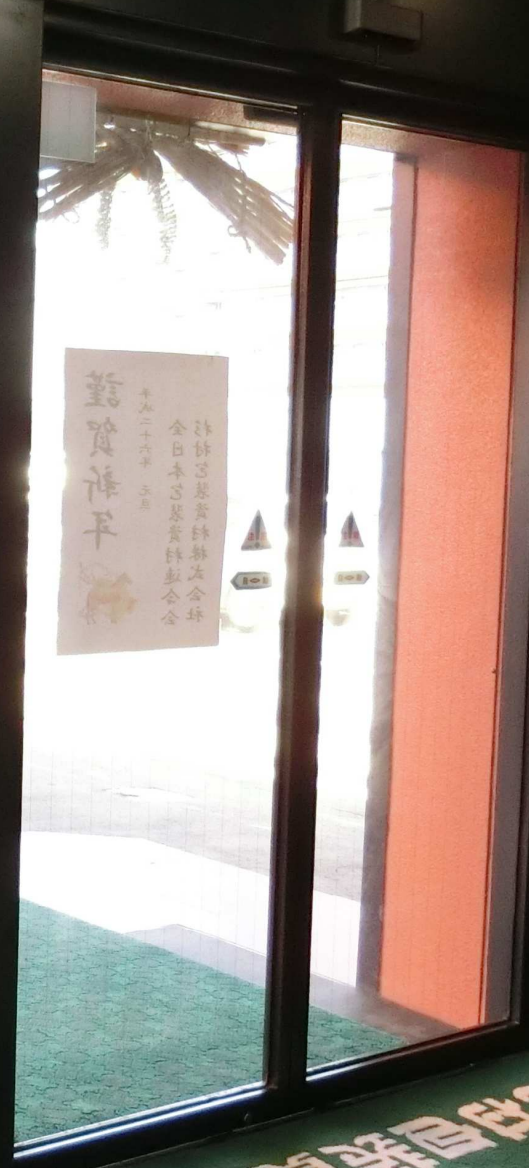 謹賀新年
平成二十六年 元旦
全日本包装資材連合会
杉村包装資材株式会社